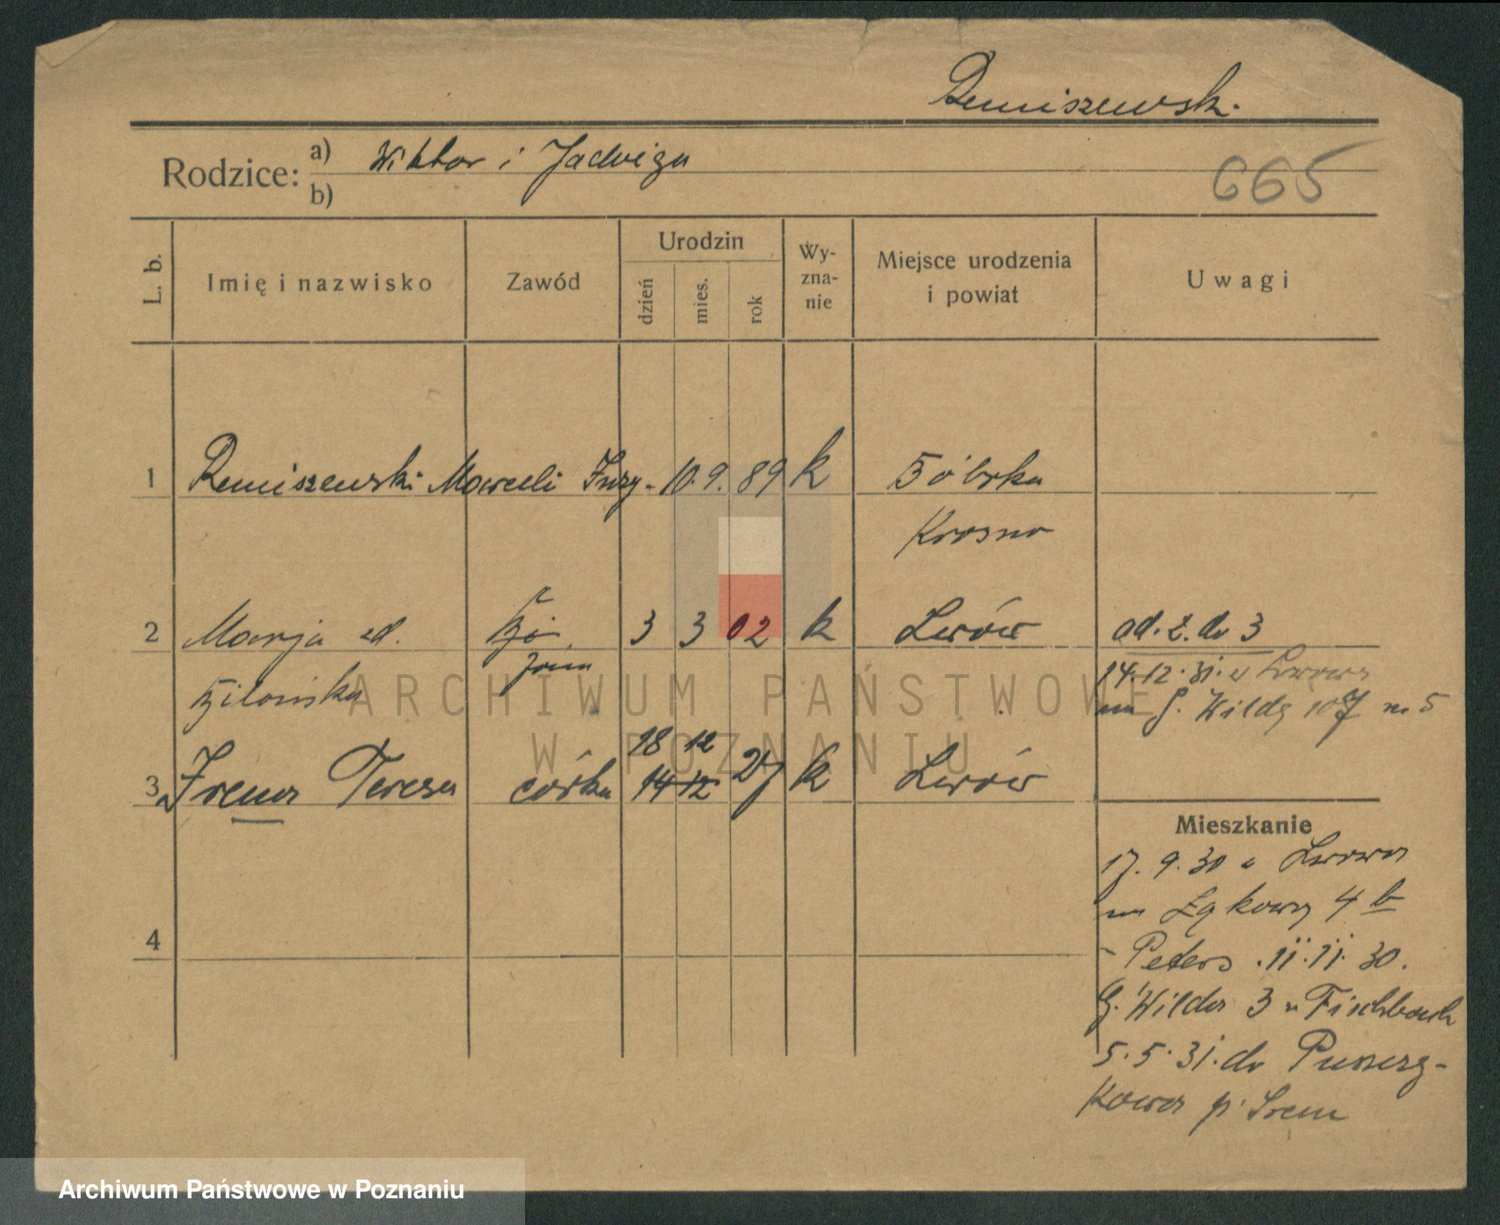 Remiszewski
Rodzice: a) Wiktor i Jadwiga
b)
665
L. b.
Imię i nazwisko
Zawód
Urodzin
dzień
mies.
rok
Wy-
zna-
nie
Miejsce urodzenia
i powiat
Uwagi
1 Remiszewski Marceli Inży- 10. 9. 89 k
Krosno
2 Marja 3 3 02 k Lwów od. 2. do 3
żona
14.12.31. z Lwowa
G. Wilda 107 m 5
18 12
3 Irena Teresa córka 14 12 27 k Lwów
Mieszkanie
17. 9. 30 z Lwowa
Łąkowa 4 b
Peters. 11.11.30.
G. Wilda 3 u Fischbach
4
5.5.31. do Puszczy-
kowa p. Śrem
ARCHIWUM PAŃSTWOWE
W POZNANIU
Archiwum Państwowe w Poznaniu